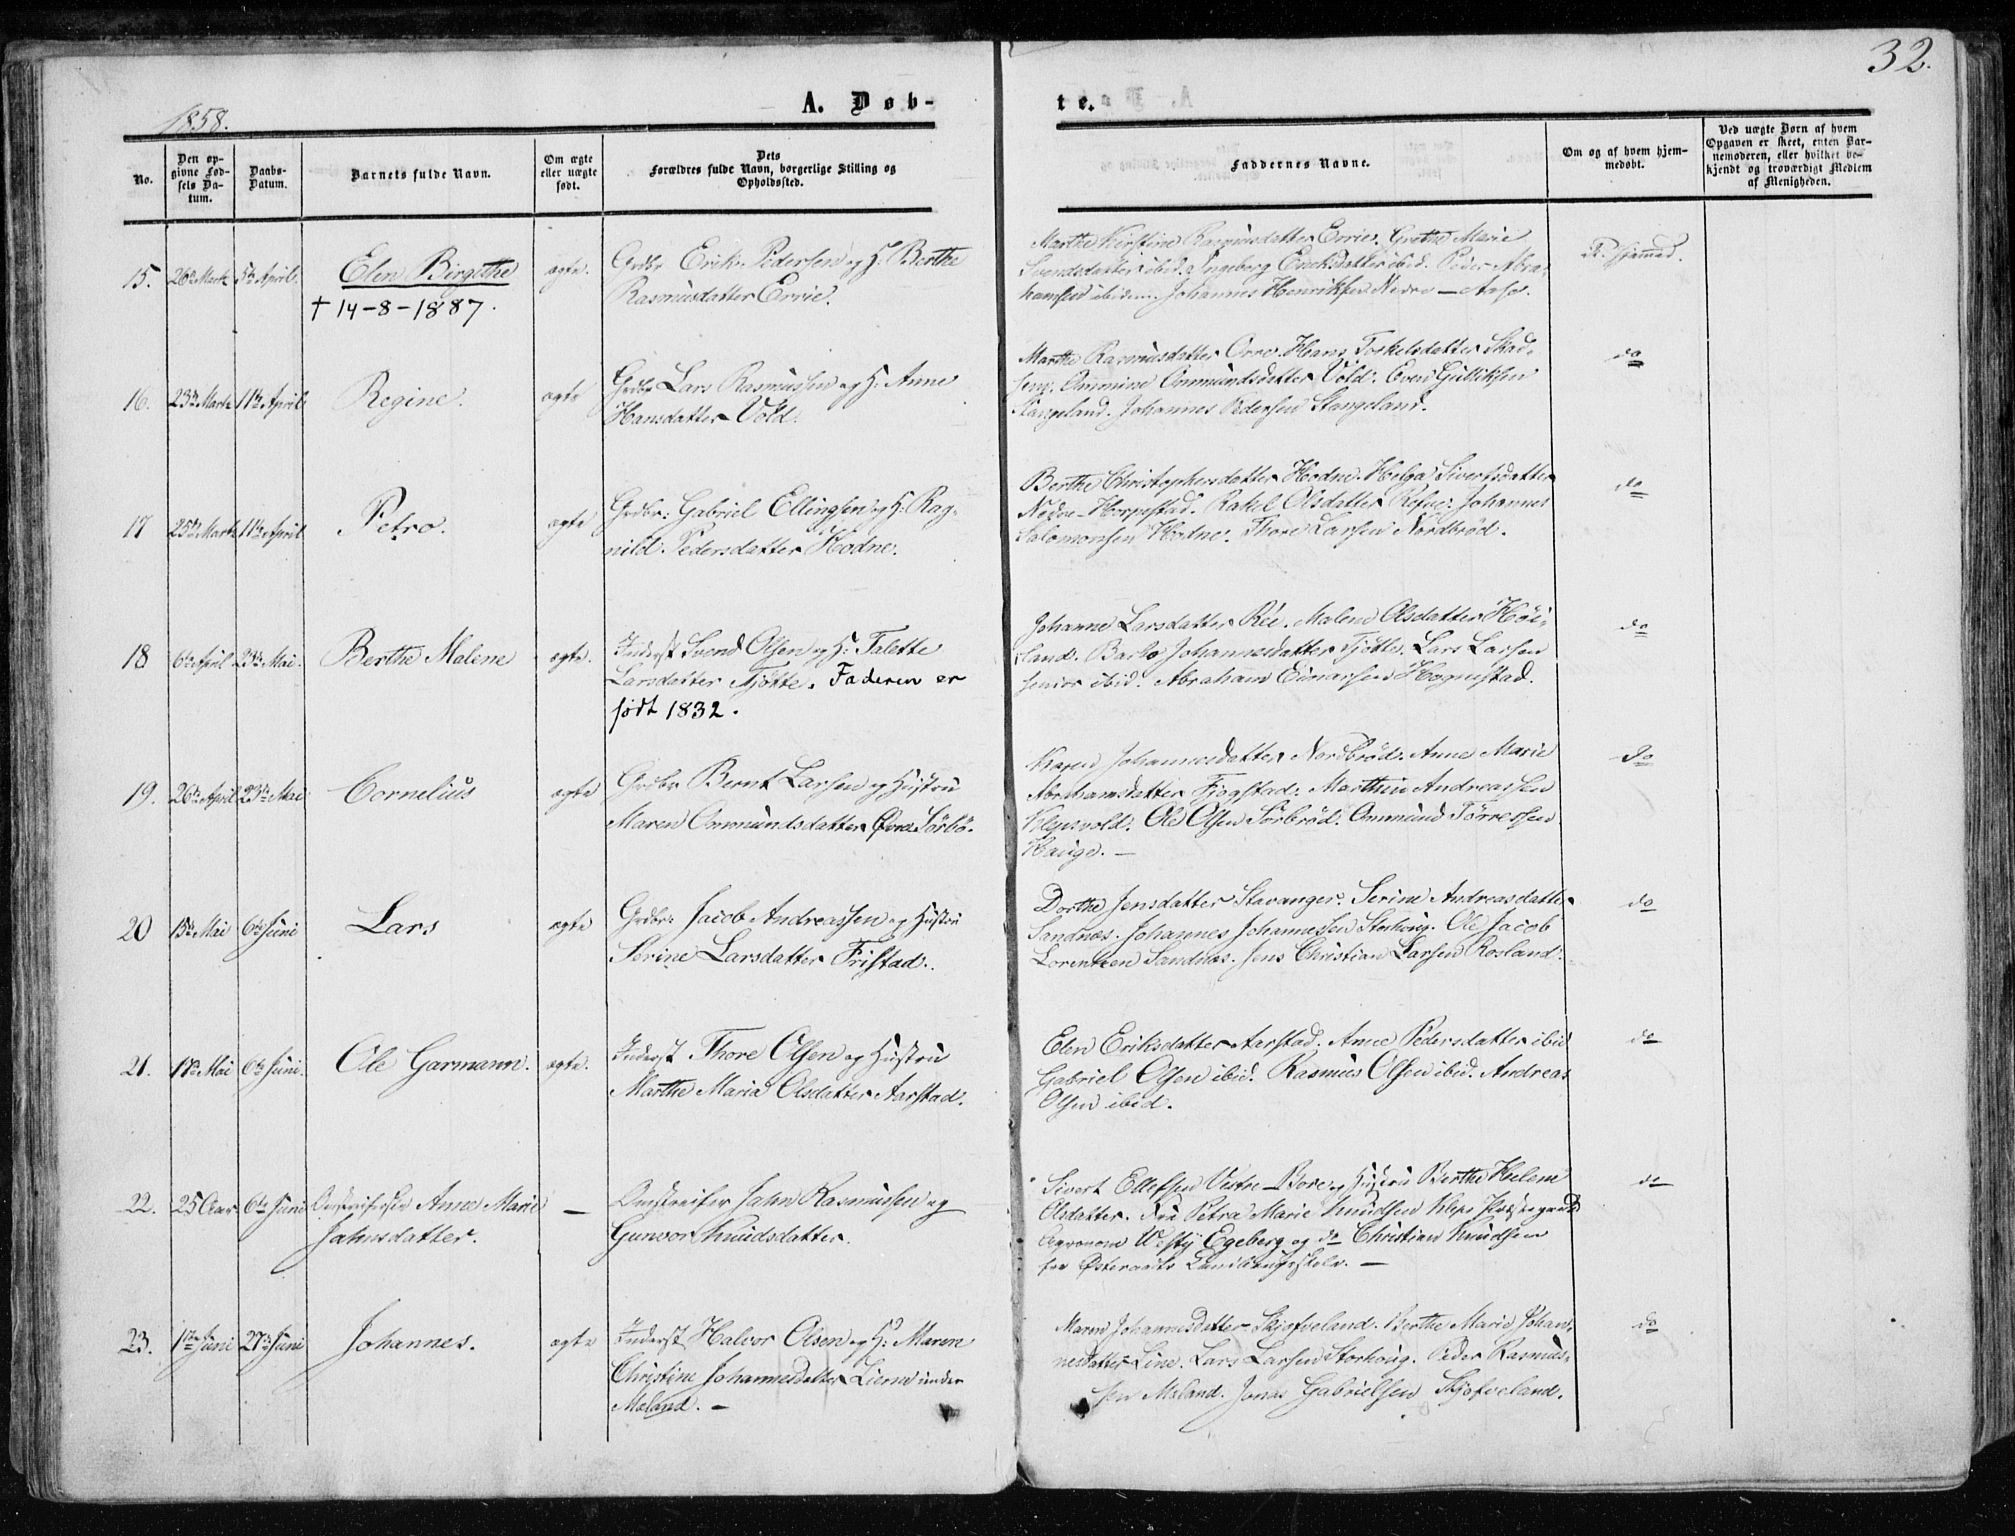 32.
1858.
A. Døb-
te.
No.
Den op-
givne Fød-
sels Da-
tum.
Daabs-
Datum.
Barnets fulde Navn.
Om ægte
eller uægte
født.
Dets
Forældres fulde Navn, borgerlige Stilling og
Opholdssted.
Faddernes Navne.
Om og af hvem hjem-
medøbt.
Ved uægte Børn af hvem
Opgaven er skeet, enten Bar-
nemoderen, eller hvilket be-
kjendt og troværdigt Medlem
af Menigheden.
15. 26de Marts 5te April. Elen Birgithe ægte. Grdbr Erik Pedersen og H: Berthe
† 14-8-1887. Rasmusdatter Errie.
Marthe Kirstine Rasmusdatter Errie. Grethe Marie
Svendsdatter ibid. Ingeborg Eriksdatter ibid. Peder Abra-
hamsen ibidem. Johannes Henriksen Nedre-Aase.
16. 23de Marts 11te April Regine. ægte Grdbr Lars Rasmussen og H: Anne
Hansdatter Vold.
Marthe Rasmusdatter Orre. Hans Toskelsdatter Skad-
sem. Ommine Ommundsdatter Vold. Even Gulliksen
Stangeland. Johannes Pedersen Stangeland.
do
17 25de Marts 11te April Petro. ægte Grdbr: Gabriel Ellingsen og H: Rag-
nild Pedersdatter Hodne.
Berthe Christophersdatter Hodne. Helga Sivertsdatter
Nedre-Horpestad. Rakel Olsdatter Refve. Johannes
Salomonsen Hodne. Thore Larsen Nordbrød.
do
18 6te April 23de Mai. Berthe Malene ægte. Inderst Svend Olsen og H: Talette
Larsdatter Tjøtte. Faderen er
født 1832.
Johanne Larsdatter Rée. Malene Olsdatter Høi-
land. Barbo Johannesdatter Tjøtte. Lars Larsen
senior ibid. Abraham Einarsen Hognestad.
do
19. 26de April 23de Mai Cornelius ægte Grdbr Bernt Larsen og Hustru
Maren Ommundsdatter Øvre Sørbø.
Karen Johannesdatter Nordbrød. Anne Marie
Abrahamsdatter Fjogstad. Marthin Andreassen
Kleppvold. Ole Olsen Sørbrød. Ommund Tørressen
Hauge. —
do
20 15de Mai 6te Juni Lars ægte Grdbr: Jacob Andreassen og Hustru
Serine Larsdatter Fristad.
Dorthe Jensdatter Stavanger. Serine Andreasdatter
Sandnes. Johannes Johannesen Storhoug. Ole Jacob
Lorentzen Sandnes. Jens Christian Larsen Rosland.
do
21. 17de Mai 6te Juni. Ole Garmann. ægte. Inderst Thore Olsen og Hustru
Marthe Maria Olsdatter Aarstad.
Elen Eriksdatter Aarstad. Anne Pedersdatter ibid
Gabriel Olsen ibid. Rasmus Olsen ibid. Andreas
Olsen ibid.
do
22. 25 Aar 6te Juni Omstreiferske Anne Marie — Omstreifer Jahn Rasmussen og
Jahnsdatter. Gunvor Knudsdatter.
Sivert Ellefsen Vestre-Bore og Hustru Berthe Helene
Olsdatter. Frú Petra Marie Knudsen Klepp Præstegaard
Agronom Westy Egeberg og do Christian Knudsen
fra Østeraads Landbrugsskole. —
do
23. 1ste Juni 27de Juni Johannes. ægte Inderst Halvor Olsen og H: Maren
Christine Johannesdatter Lierne under
Mæland. —
Maren Johannesdatter Skjæfveland. Berthe Marie Johan-
nesdatter Line. Lars Larsen Storhoug. Peder Rasmus-
sen Mæland. Jonas Gabrielsen Skjæfveland.
do